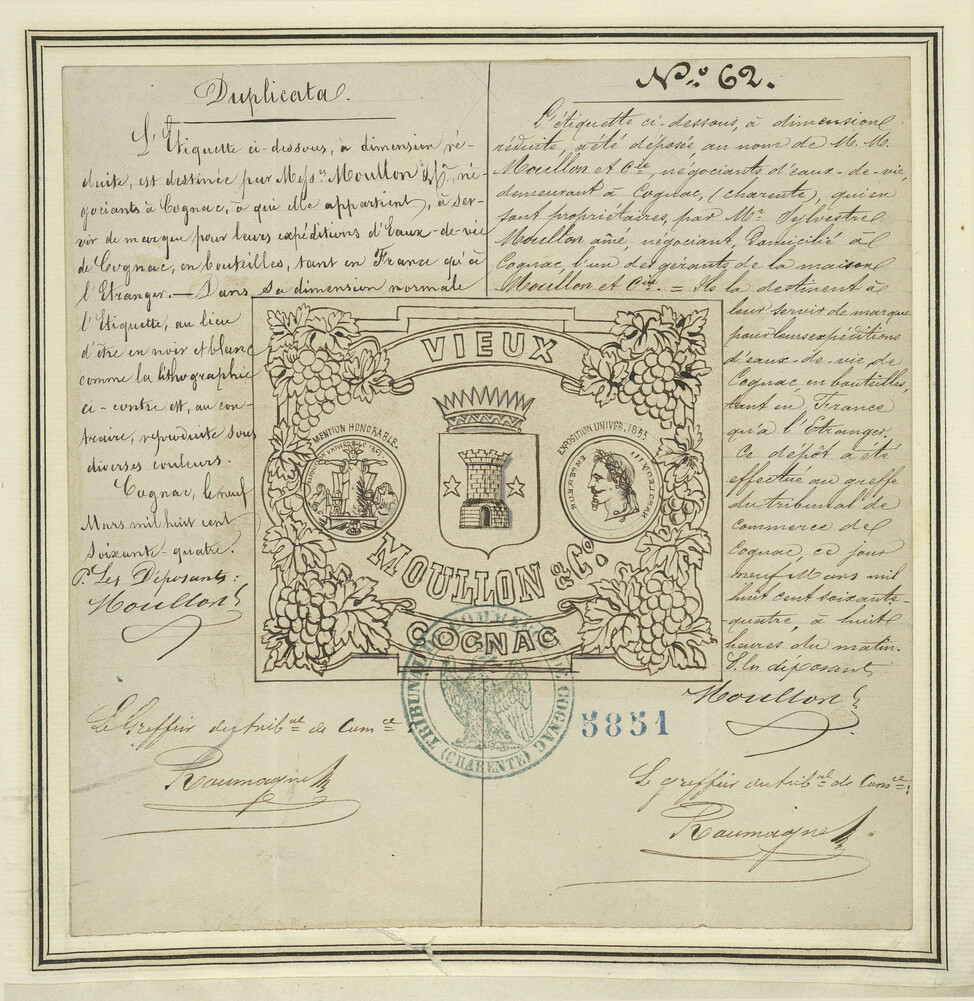 Duplicata.
L'Etiquette ci-dessous, à dimension ré-
duite, est destinée par Mess.rs Moullon & Cie, né-
gociants à Cognac, à qui elle appartient, à ser-
vir de marque pour leurs expéditions d'Eaux-de-vie
de Cognac, en bouteilles, tant en France qu'à
l'Etranger. — Dans sa dimension normale
l'Etiquette, au lieu
d'être en noir et blanc
comme la lithographie
ci-contre est, au con-
traire, reproduite sous
diverses couleurs.
Cognac, le neuf
Mars mil huit cent
soixante-quatre.
P. Les Déposants:
Moullon
Le Greffier du trib.al de Com.ce
Roumagne
N.o 62.
L'étiquette ci-dessous, à dimension
réduite, a été déposée au nom de M. M.
Moullon et Cie, négociants d'eaux-de-vie,
demeurant à Cognac, (charente), qui en
sont propriétaires, par Mr. Silvestre
Moullon aîné, négociant, domicilié à
Cognac l'un des gérants de la maison
Moullon et Cie. = Ils la destinent à
leur servir de marque
pour leurs expéditions
d'eaux-de-vie, de
Cognac en bouteilles,
tant en France
qu'à l'Etranger.
Ce dépôt a été
effectué au greffe
du tribunal de
Commerce de
Cognac, ce jour
neuf Mars mil
huit cent soixante-
quatre, à huit
heures du matin.
P. les déposants
Moullon
Le greffier du trib.al de Com.ce:
Roumagne
VIEUX
MENTION HONORABLE
EXPOSITION UNIVER. 1855
MOULLON & Co.
COGNAC
TRIBUNAL DE COMMERCE DE COGNAC
(CHARENTE)
5851